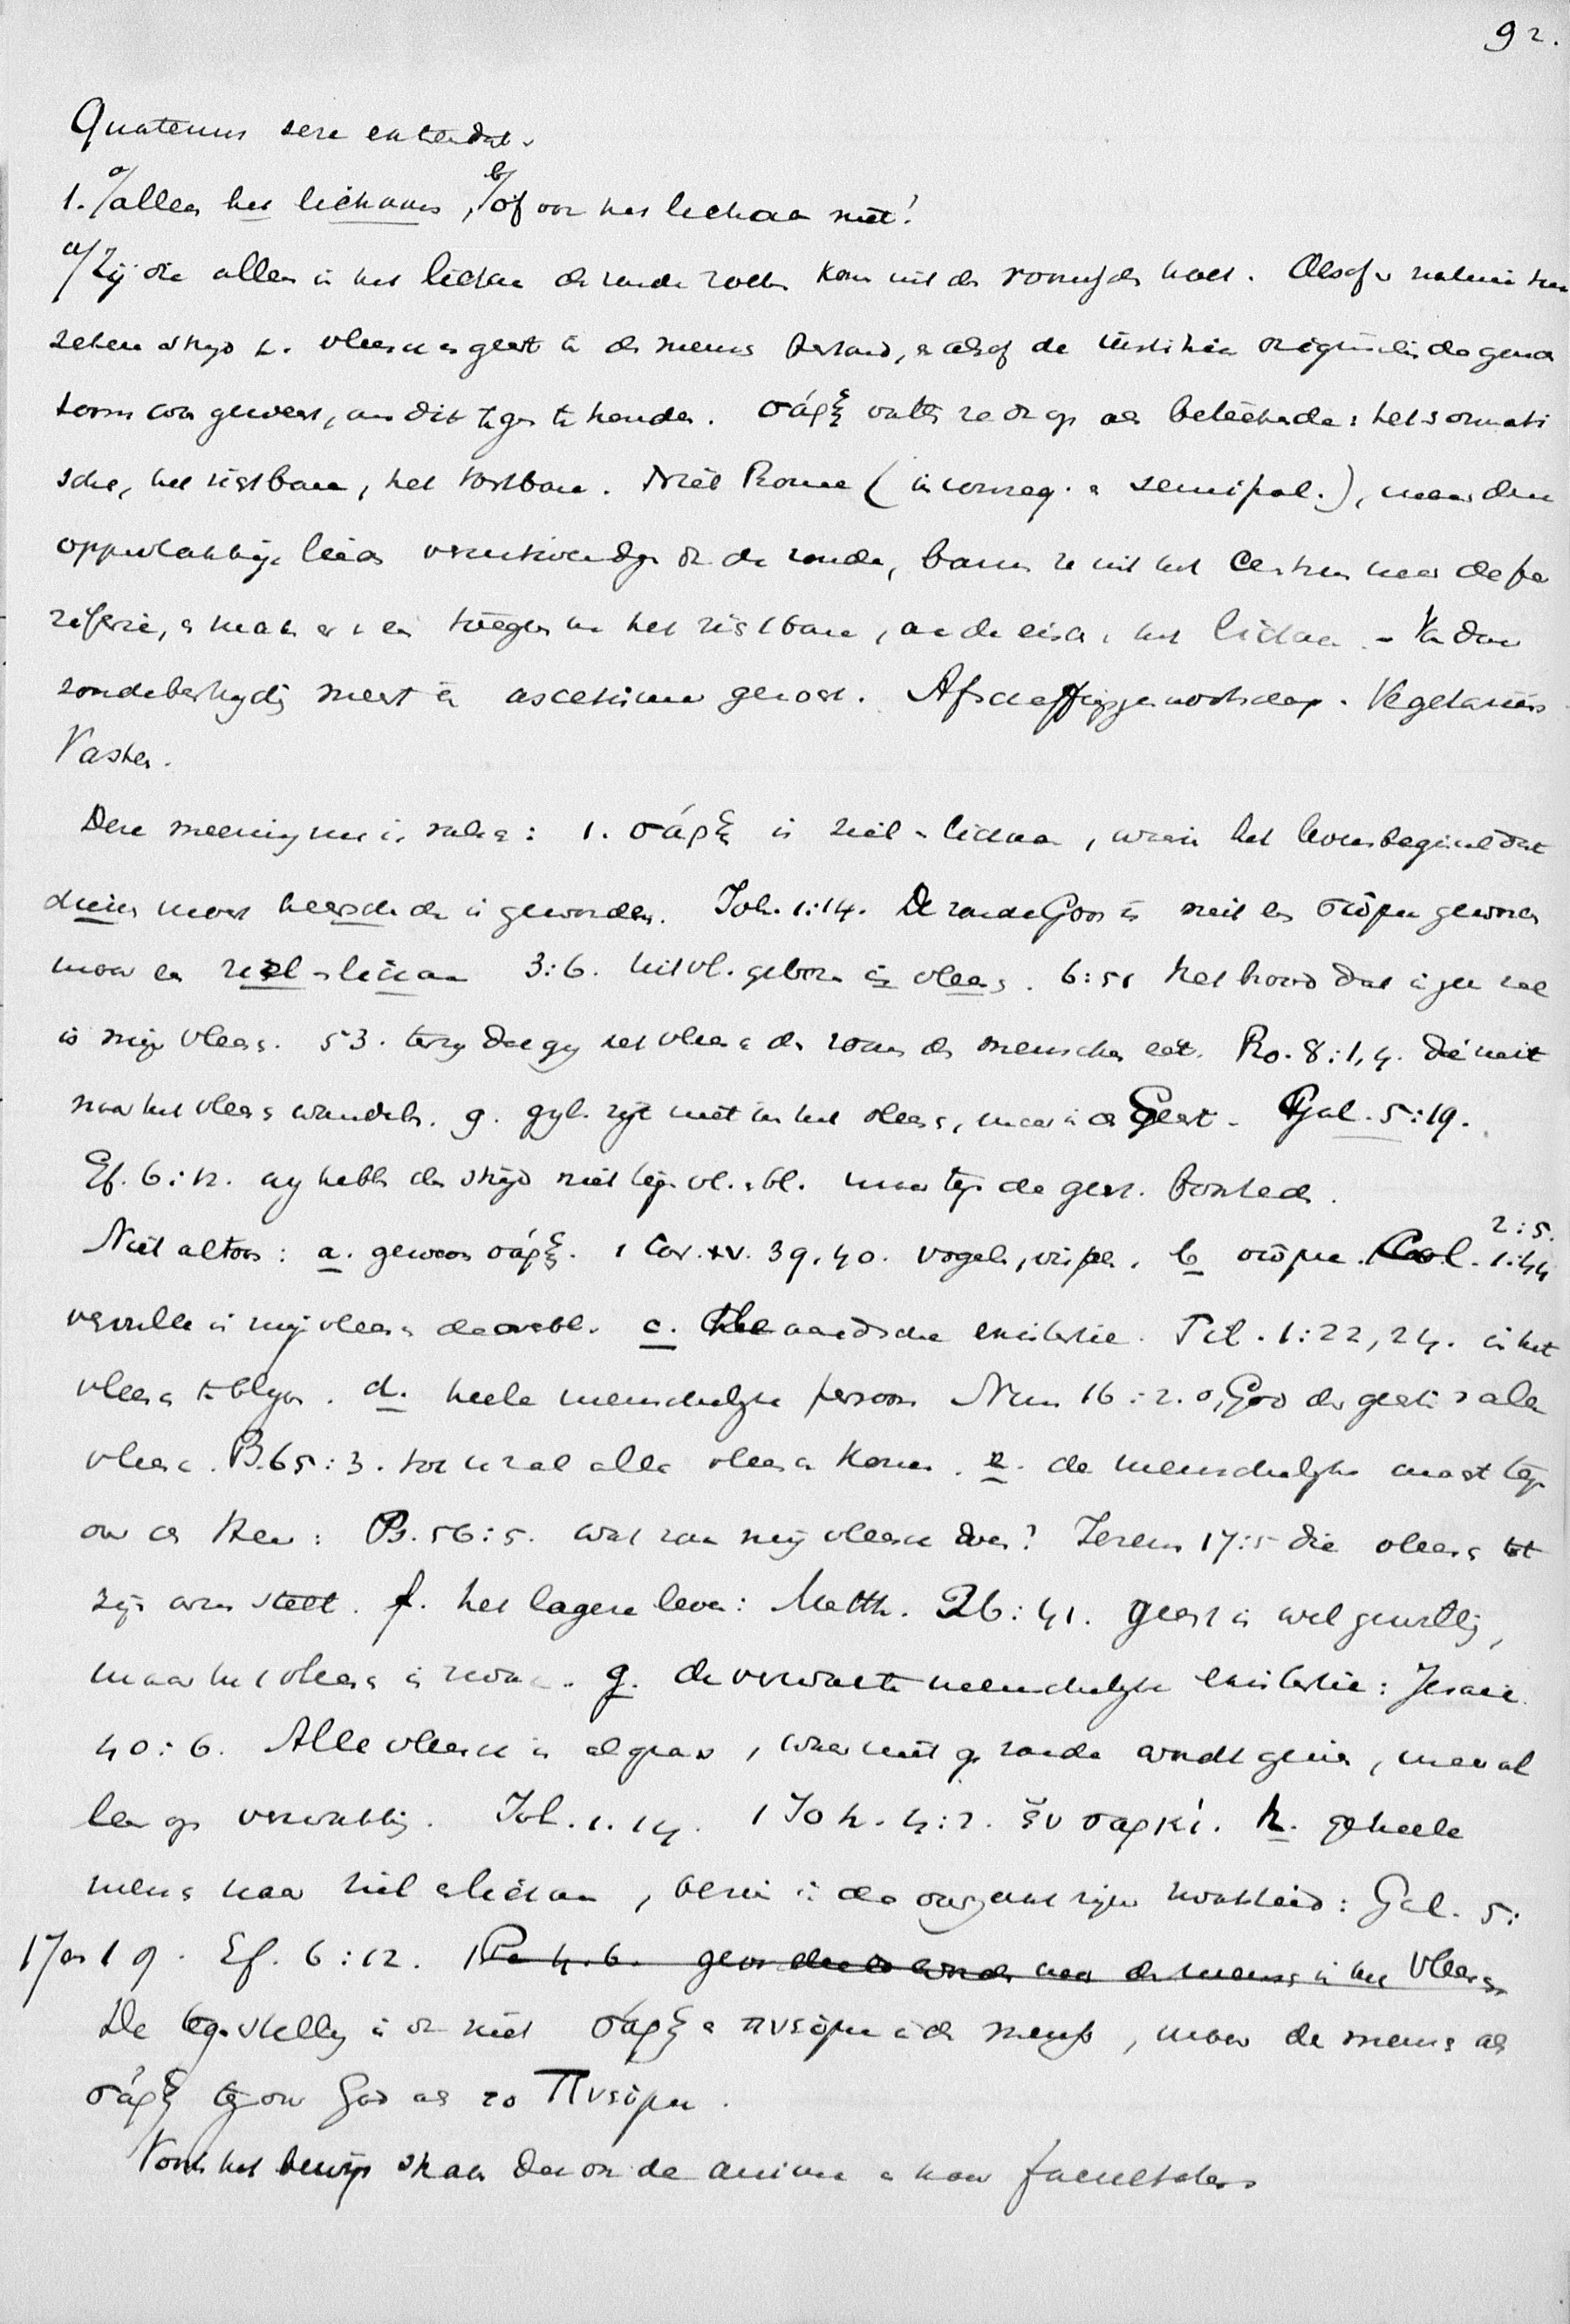 92.
Quatenus sese extendat.
1. a/ alleen het lichaam, b/ of ook het lichaam niet!
a/ Zij die alleen in het lichaam de zonde zoeken kom uit de roomsche hoek. Alsof v nature
strijd v. vleesch en geest in de mensch bestond, en alsof de justitia originalis de gouden
toom was geweest, om dit tegen te houden. σάρξ vatten ze dan op als beteekende: het somati
sche, het zichtbare, het tastbare. Niet Rome (in conseq. en semipel.), maar den
oppervlakkige lieden verontschuldigen de zonde, bannen ze uit het centrum naar de pe
riferie, en maken er een toevoegen aan het zichtbare, het lichaam. - Van daar
zondebestrijding meest in ascetisme gezocht. Afschaffingsgenootschap. Vegetariers
Vasten.
Deze meening nu is valsch: 1. σάρξ is ziel en lichaam, waarin het levensbeginsel dat
dienen moest heerschende is geworden. Joh. 1:14. De zoon Gods is niet een σῶμα geworden
maar en ziel en lichaam 3:6. uit vl. geboren is vleesch. 6:51 het brood dat ik geven zal
is mijn vleesch. 53. tenzij dat gij het vleesch des zoons des menschen eet. Ro. 8:1,4. die niet
naar het vleesch wandelen. 9. gijl. zijt niet in het vleesch, maar in de Geest. Gal. 5:19.
Ef. 6:12. wij hebben de strijd niet tegen vl. en bl. maar tegen de geest. boosheden.
Niet altoos: a. gewoon σάρξ. 1 Cor. XV. 39, 40. vogelen, visschen. b σῶμα. Col. 1:24 2:5.
vervulle in mijn vleesch de overbl. c. aardsche existentie. Fil. 1:22, 24. in het
vleesch te blijven. d. heele menschelijke persoon Num 16:22. o, God der geesten van alle
vleesch. Ps. 65:3. tot u zal alle vleesch komen. e. de menschelijke macht tegen
over de Heer: Ps. 56:5. wat zou mij vleesch doen? Jerem 17:5 die vleesch tot
zijn arm stelt. f. het lagere leven: Matth. 26:41. geest is wel gewillig,
maar het vleesch is zwak. g. de verzwakte menschelijke existentie: Jesaia
40:6. Alle vleesch is als gras, waar niet op zonde wordt gezien, maar al
leen op verzwakking. Joh. 1.14. 1 Joh. 4:2. ἐν σαρκί. h. geheele
mensch naar ziel en lichaam, bezien in de oorzaak zijner zwakheid: Gal. 5:
17 en 19. Ef. 6:12. 1 Pe 4.6. geoordeeld worden naar de mensch in het vleesch
De tegenstelling is dan niet σάρξ en πνεῦμα in de mensch, maar de mensch als
σάρξ tegenover God als το Πνεῦμα.
Voorts het bewijs dat ook de anima en haar facultates